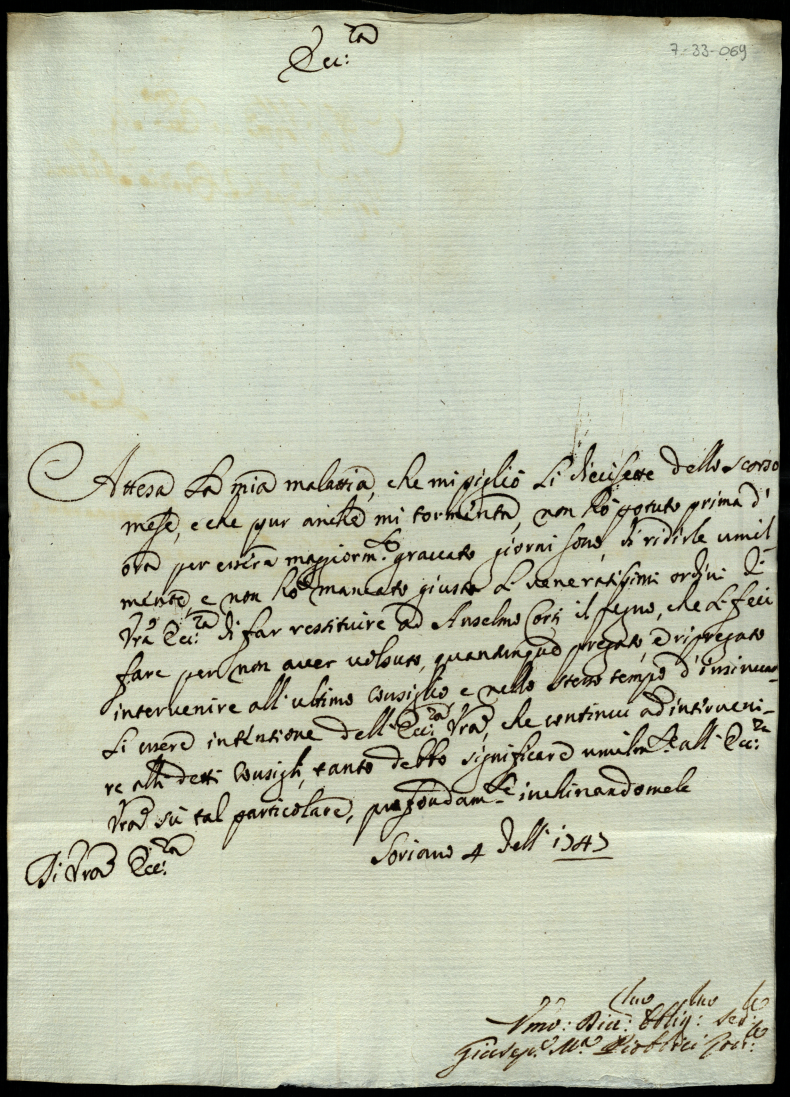 7-33-069
Ecc:za
Attesa la mia malattia, che mi pigliò li diecisette dello scorso
mese, e che pur anche mi tormenta, non hò potuto prima d'
ora per essera maggiorm.te gravato giorni sono, di ridirle umil
mente, e non hò mancato giusto li veneratissimi ordini di
Vrã Ecc:za di far restituire ad Anselmo Corti il pegno, che li feci
fare per non aver voluto, quantunque pregato, e ripregato
intervenire all'ultimo Consiglio e nello stesso tempo d'insinuar
li essere intentione dell'Ecc:za Vrã, che continui ad interveni-
re alli detti Consigli, tanto debbo significare umilm.te all'Ecc:za
Vrã sù tal particolare, profondam.te inchinandomele
Di Vrã Ecc:za
Soriano 4 dell' 1747
Vmo: Div: Obblig: Ser:
Giusep.e M.a